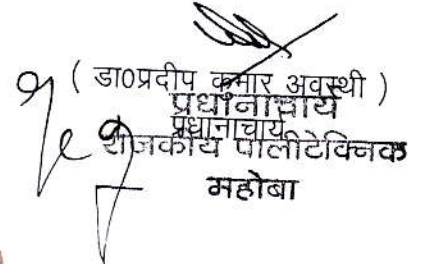 ( डा०प्रदीप कुमार अवस्थी )
प्रधानाचार्य
प्रधानाचार्य
राजकीय पालीटेक्निक
महोबा